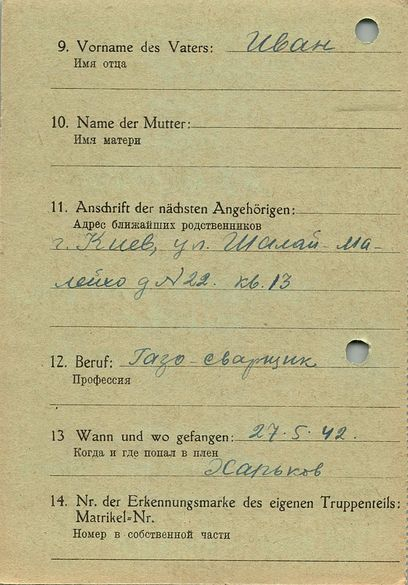 9. Vorname des Vaters: Иван
Имя отца
10. Name der Mutter:
Имя матери
11. Anschrift der nächsten Angehörigen:
Адрес ближайших родственников
г. Киев, ул. Шалай-Ма-
лейхо д N 22. кв. 13
12. Beruf: Газо-сварщик
Профессия
13 Wann und wo gefangen: 27.5.42.
Когда и где попал в плен
Харьков
14. Nr. der Erkennungsmarke des eigenen Truppenteils:
Matrikel=Nr.
Номер в собственной части